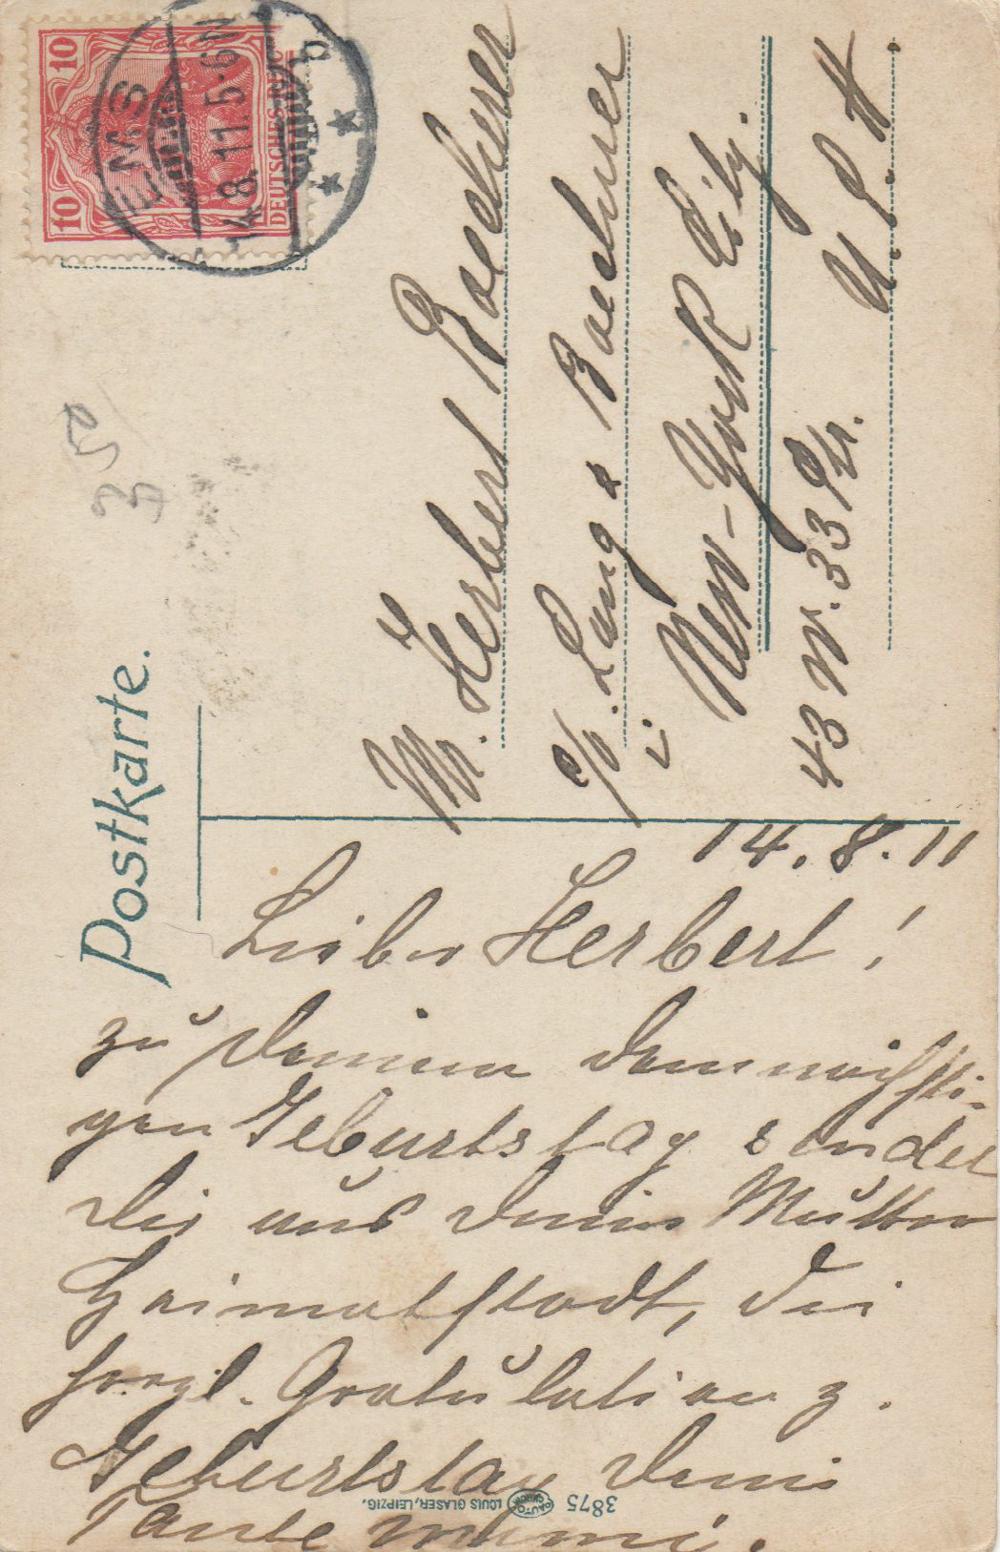 Postkarte.
10 10
DEUTSCHES REICH
EMS
14.8.11.5-6N
b
350
Mr. Herbert Boechner
c/o. Lang & Boechner
i. New-York City.
43 W. 33 Str.
U. S. A.
14. 8. 11
Lieber Herbert!
zu Deinem demnächsti-
gen Geburtstag sendet
Dir aus Deiner Mutter
Heimatstadt, die
herzl. Gratulation z.
Geburtstag Deine
Tante Mimi.
3875 AUTO CHROM LOUIS GLASER, LEIPZIG.